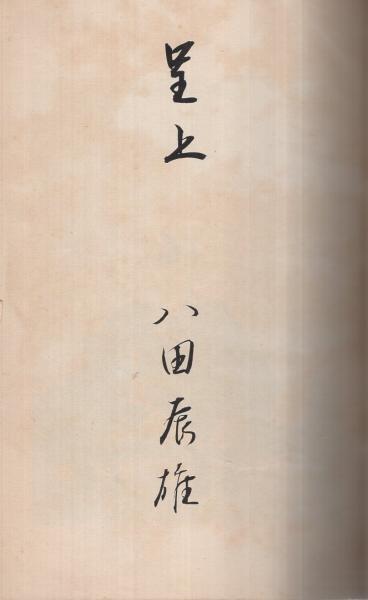 呈上
八田辰雄